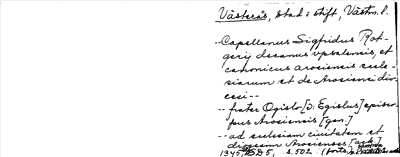 Västerås, stad o stift, Västm. l.
--Capellanus Sigfridus Rot-
gerij decanus upsalensis, et
canonicus arosiensis eccle-
siarum et de Arosiensi dio-
cesi--
--frater Ogislo [D: Egislus] episco-
pus Arosiensis [gen.]
--ad ecclesiam civitatem et
diocesim Arosienses [ack.]
1345 SD5, s. 502 (forts.)